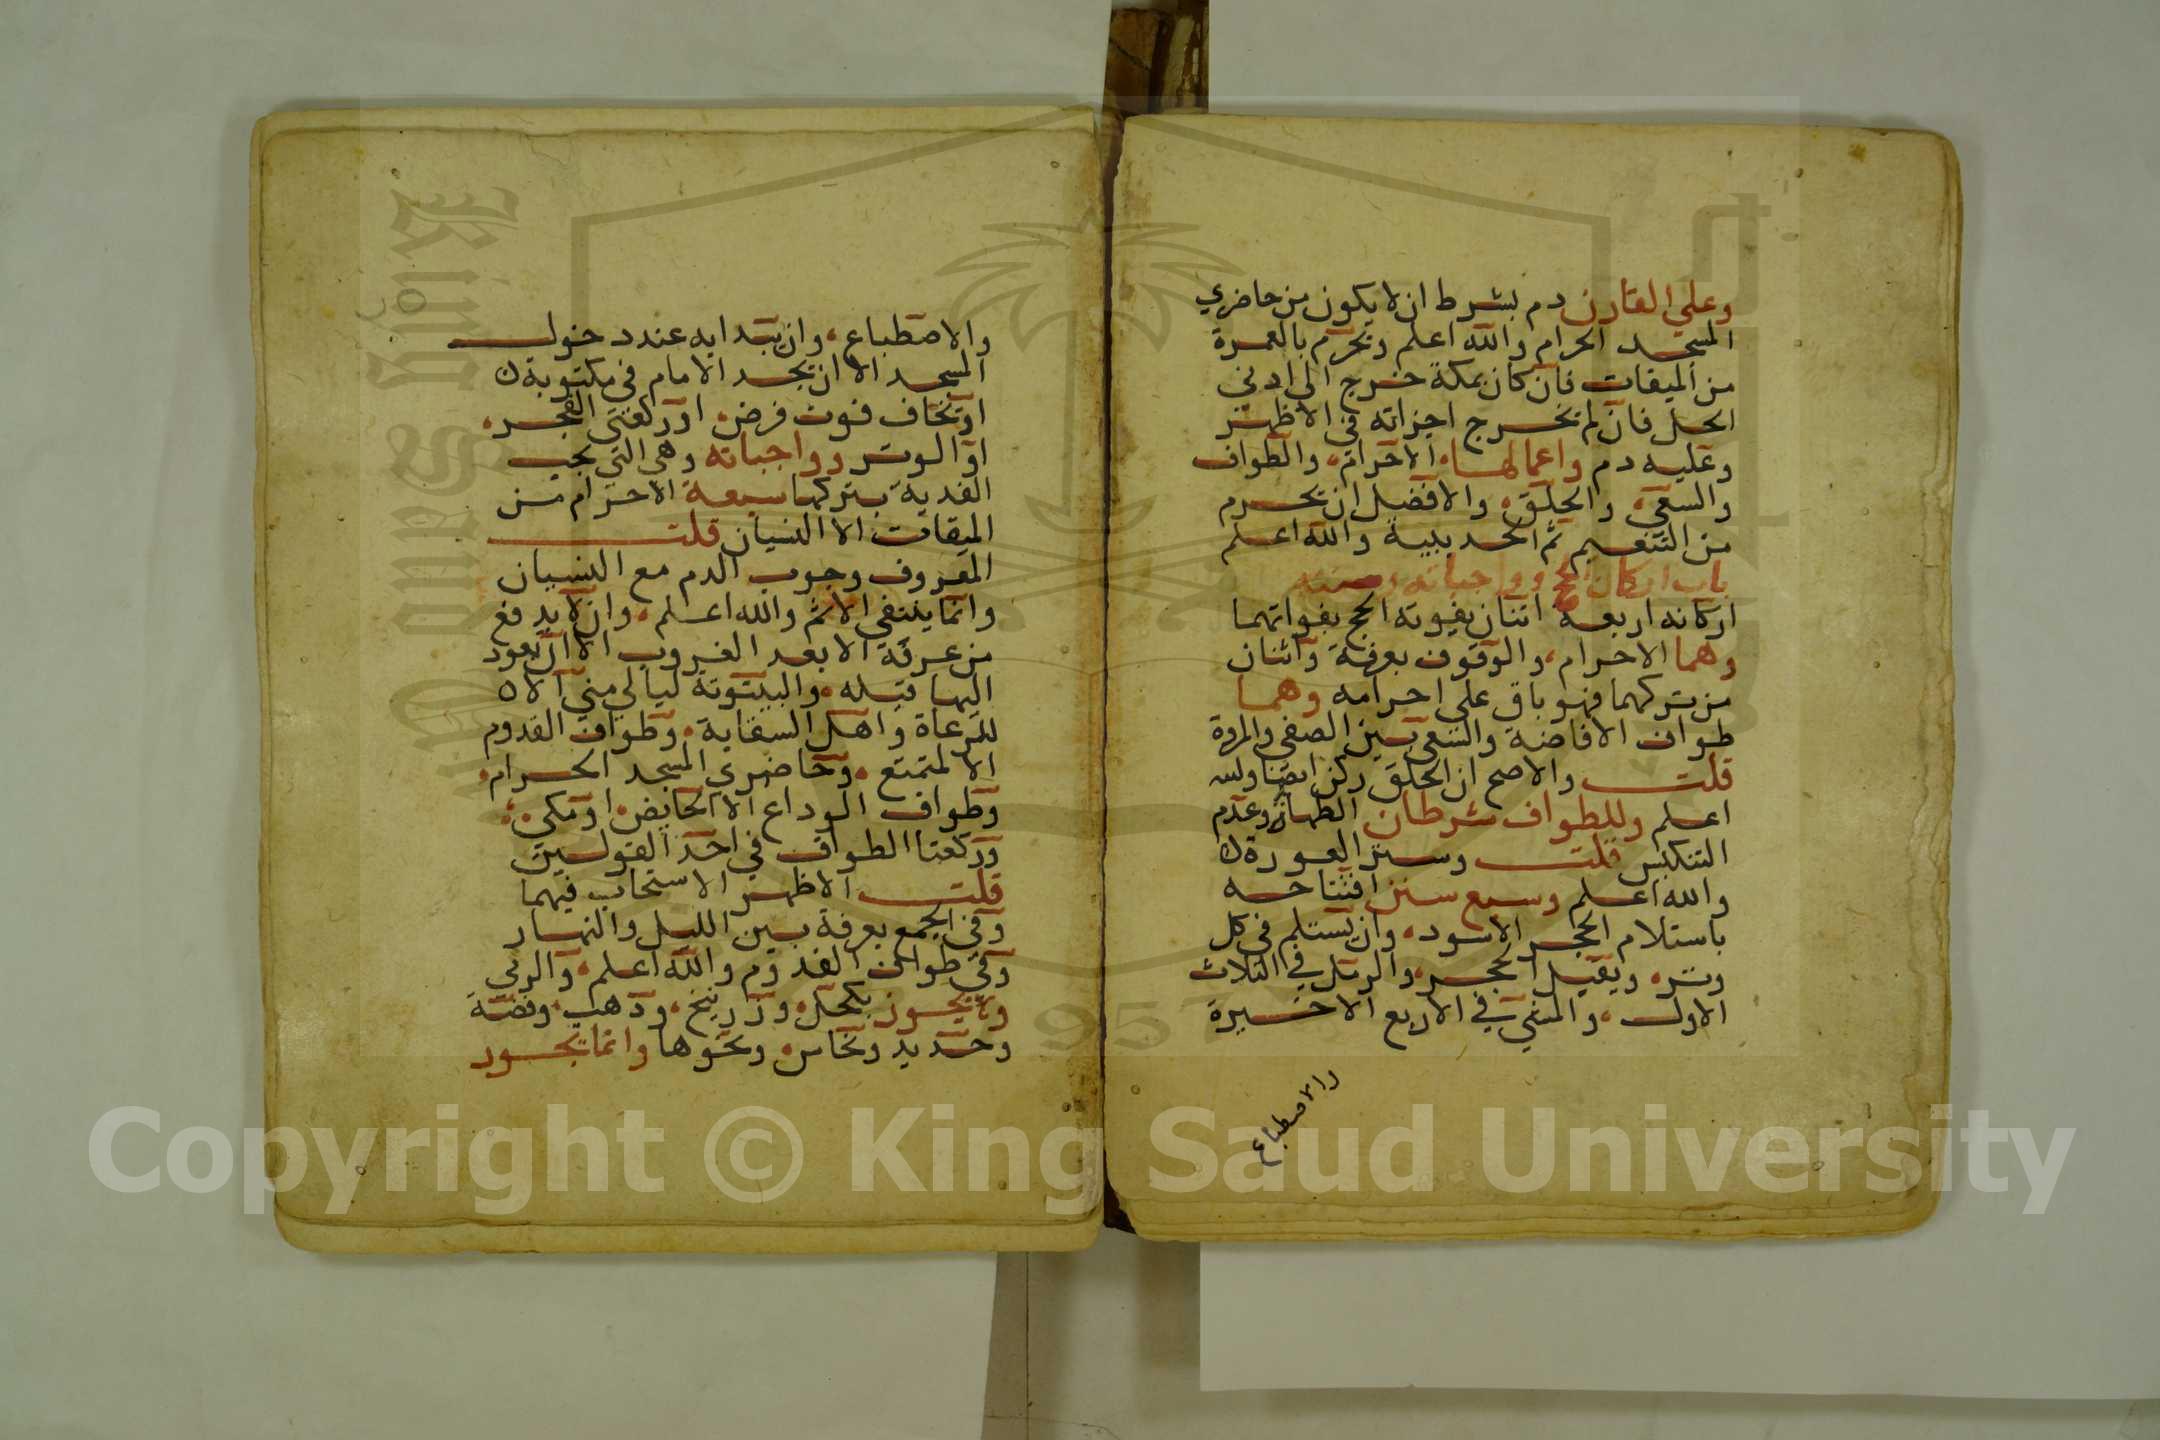 وعلي القارن دم بشرط ان لا يكون من حاضري
المسجد الحرام والله اعلم وتحرم بالعمرة
من الميقات فان كان بمكة خرج الي ادني
الحل فان لم تخرج اجزاته في الاظهر
وعليه دم واعمالها الاحرام والطواف
والسعي والحلق والافضل ان تحرم
من التنعيم ثم الحديبية والله اعلم
باب اركان الحج وواجباته وسننه
اركانه اربعة اثنان يفوته الحج بفواتهما
وهما الاحرام والوقوف بعرفة واثنان
من تركهما فهو باق علي احرامه وهما
طواف الافاضة والسعي بين الصفي والمروة
قلت والاصح ان الحلق ركن ايضا والله
اعلم وللطواف شرطان الطهارة وعدم
التنكيس قلت وستر العورة
والله اعلم وسبع سنن افتتاحه
باستلام الحجر الاسود وان يستلم في كل
وتر ويقبل الحجر والرمل في الثلاث
الاول والمشي في الاربع الاخيرة
والاصطباع
والاصطباع وان يبتدا به عند دخول
المسجد الا ان تجد الامام في مكتوبة
او تخاف فوت فرض او ركعتي الفجر
او الوتر وواجباته وهي التي تجب
الفدية بتركها سبعة الاحرام من
الميقات الا النسيان قلت
المعروف وجوب الدم مع النسيان
وانما ينتفي الاثم والله اعلم وان لا يدفع
من عرفة الا بعد الغروب الا ان يعود
اليها قبله والبيتوتة ليالي مني الا
للرعاة واهل السقاية وطواف القدوم
الا لمتمتع وحاضري المسجد الحرام
وطواف الوداع الا لحايض او مكي
وركعتا الطواف في احد القولين
قلت الاظهر الاستحاب فيهما
وفي الجمع بعرفة بين الليل والنهار
وفي طواف القدوم والله اعلم والرمي
ولا يجوز بكحل وزرنيخ وذهب وفضة
وحديد ونحاس ونحوها وانما يجوز
King Saud University
1957
Copyright © King Saud University